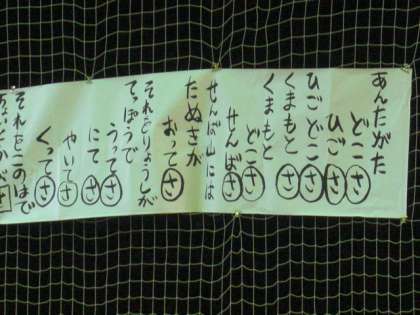 あんたがた
どこさ
ひごさ
ひごどこさ
くまもとさ
くまもと
どこさ
せんばさ
せんば山には
たぬきが
おってさ
それをりょうしが
てっぽうで
うってさ
にてさ
やいてさ
くってさ
それをこのはで